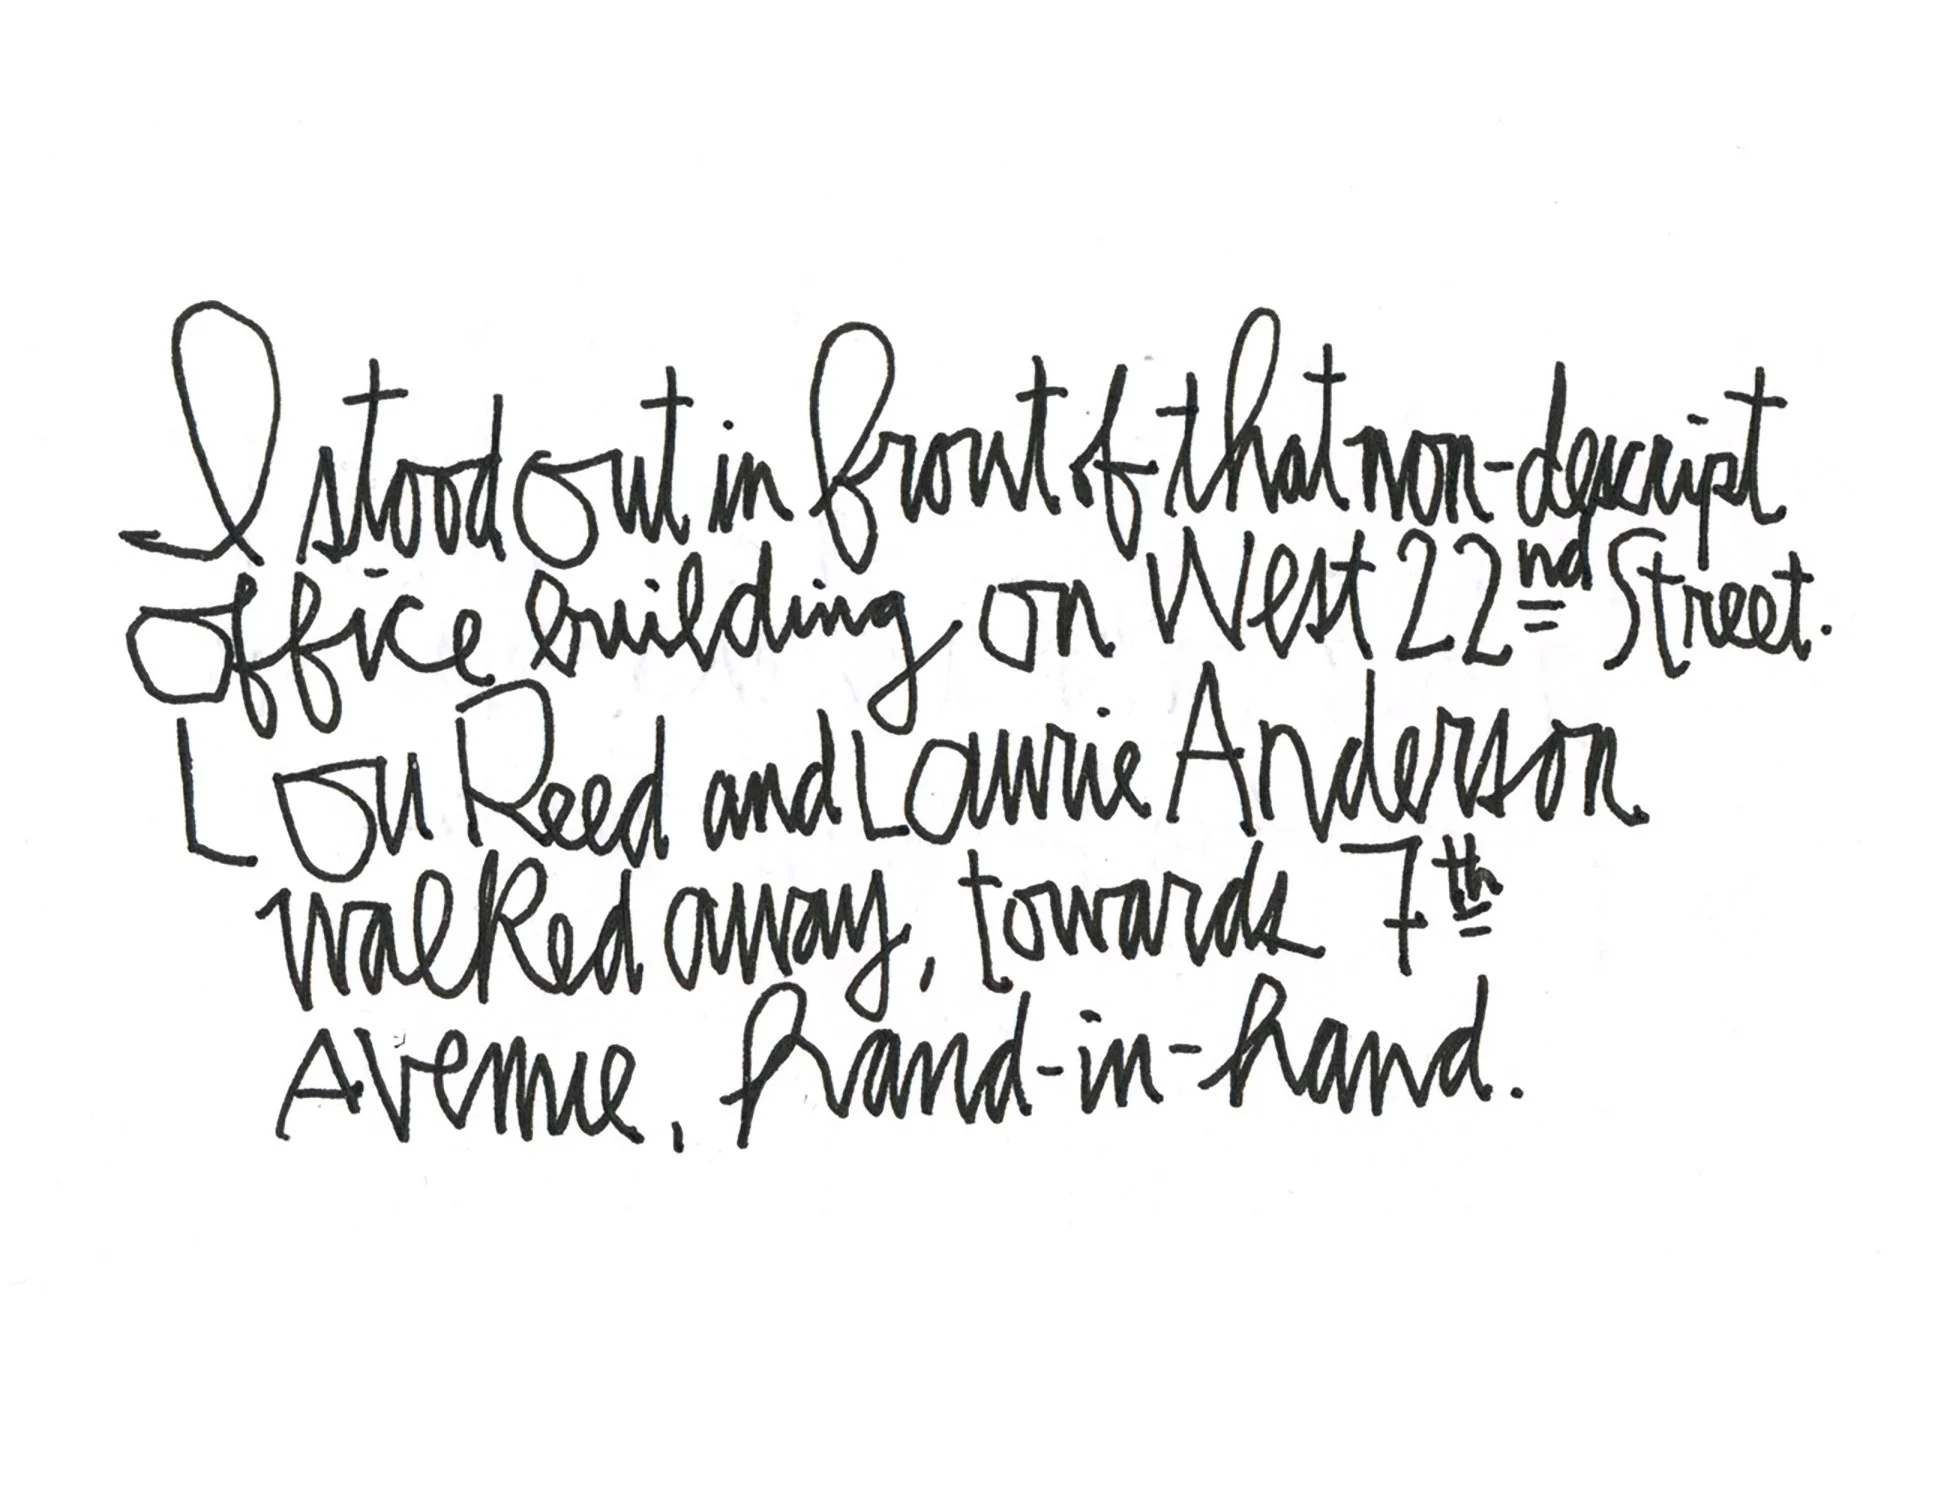 I stood out in front of that non-descript
office building on West 22nd Street.
Lou Reed and Laurie Anderson
walked away, towards 7th
Avenue, hand-in-hand.